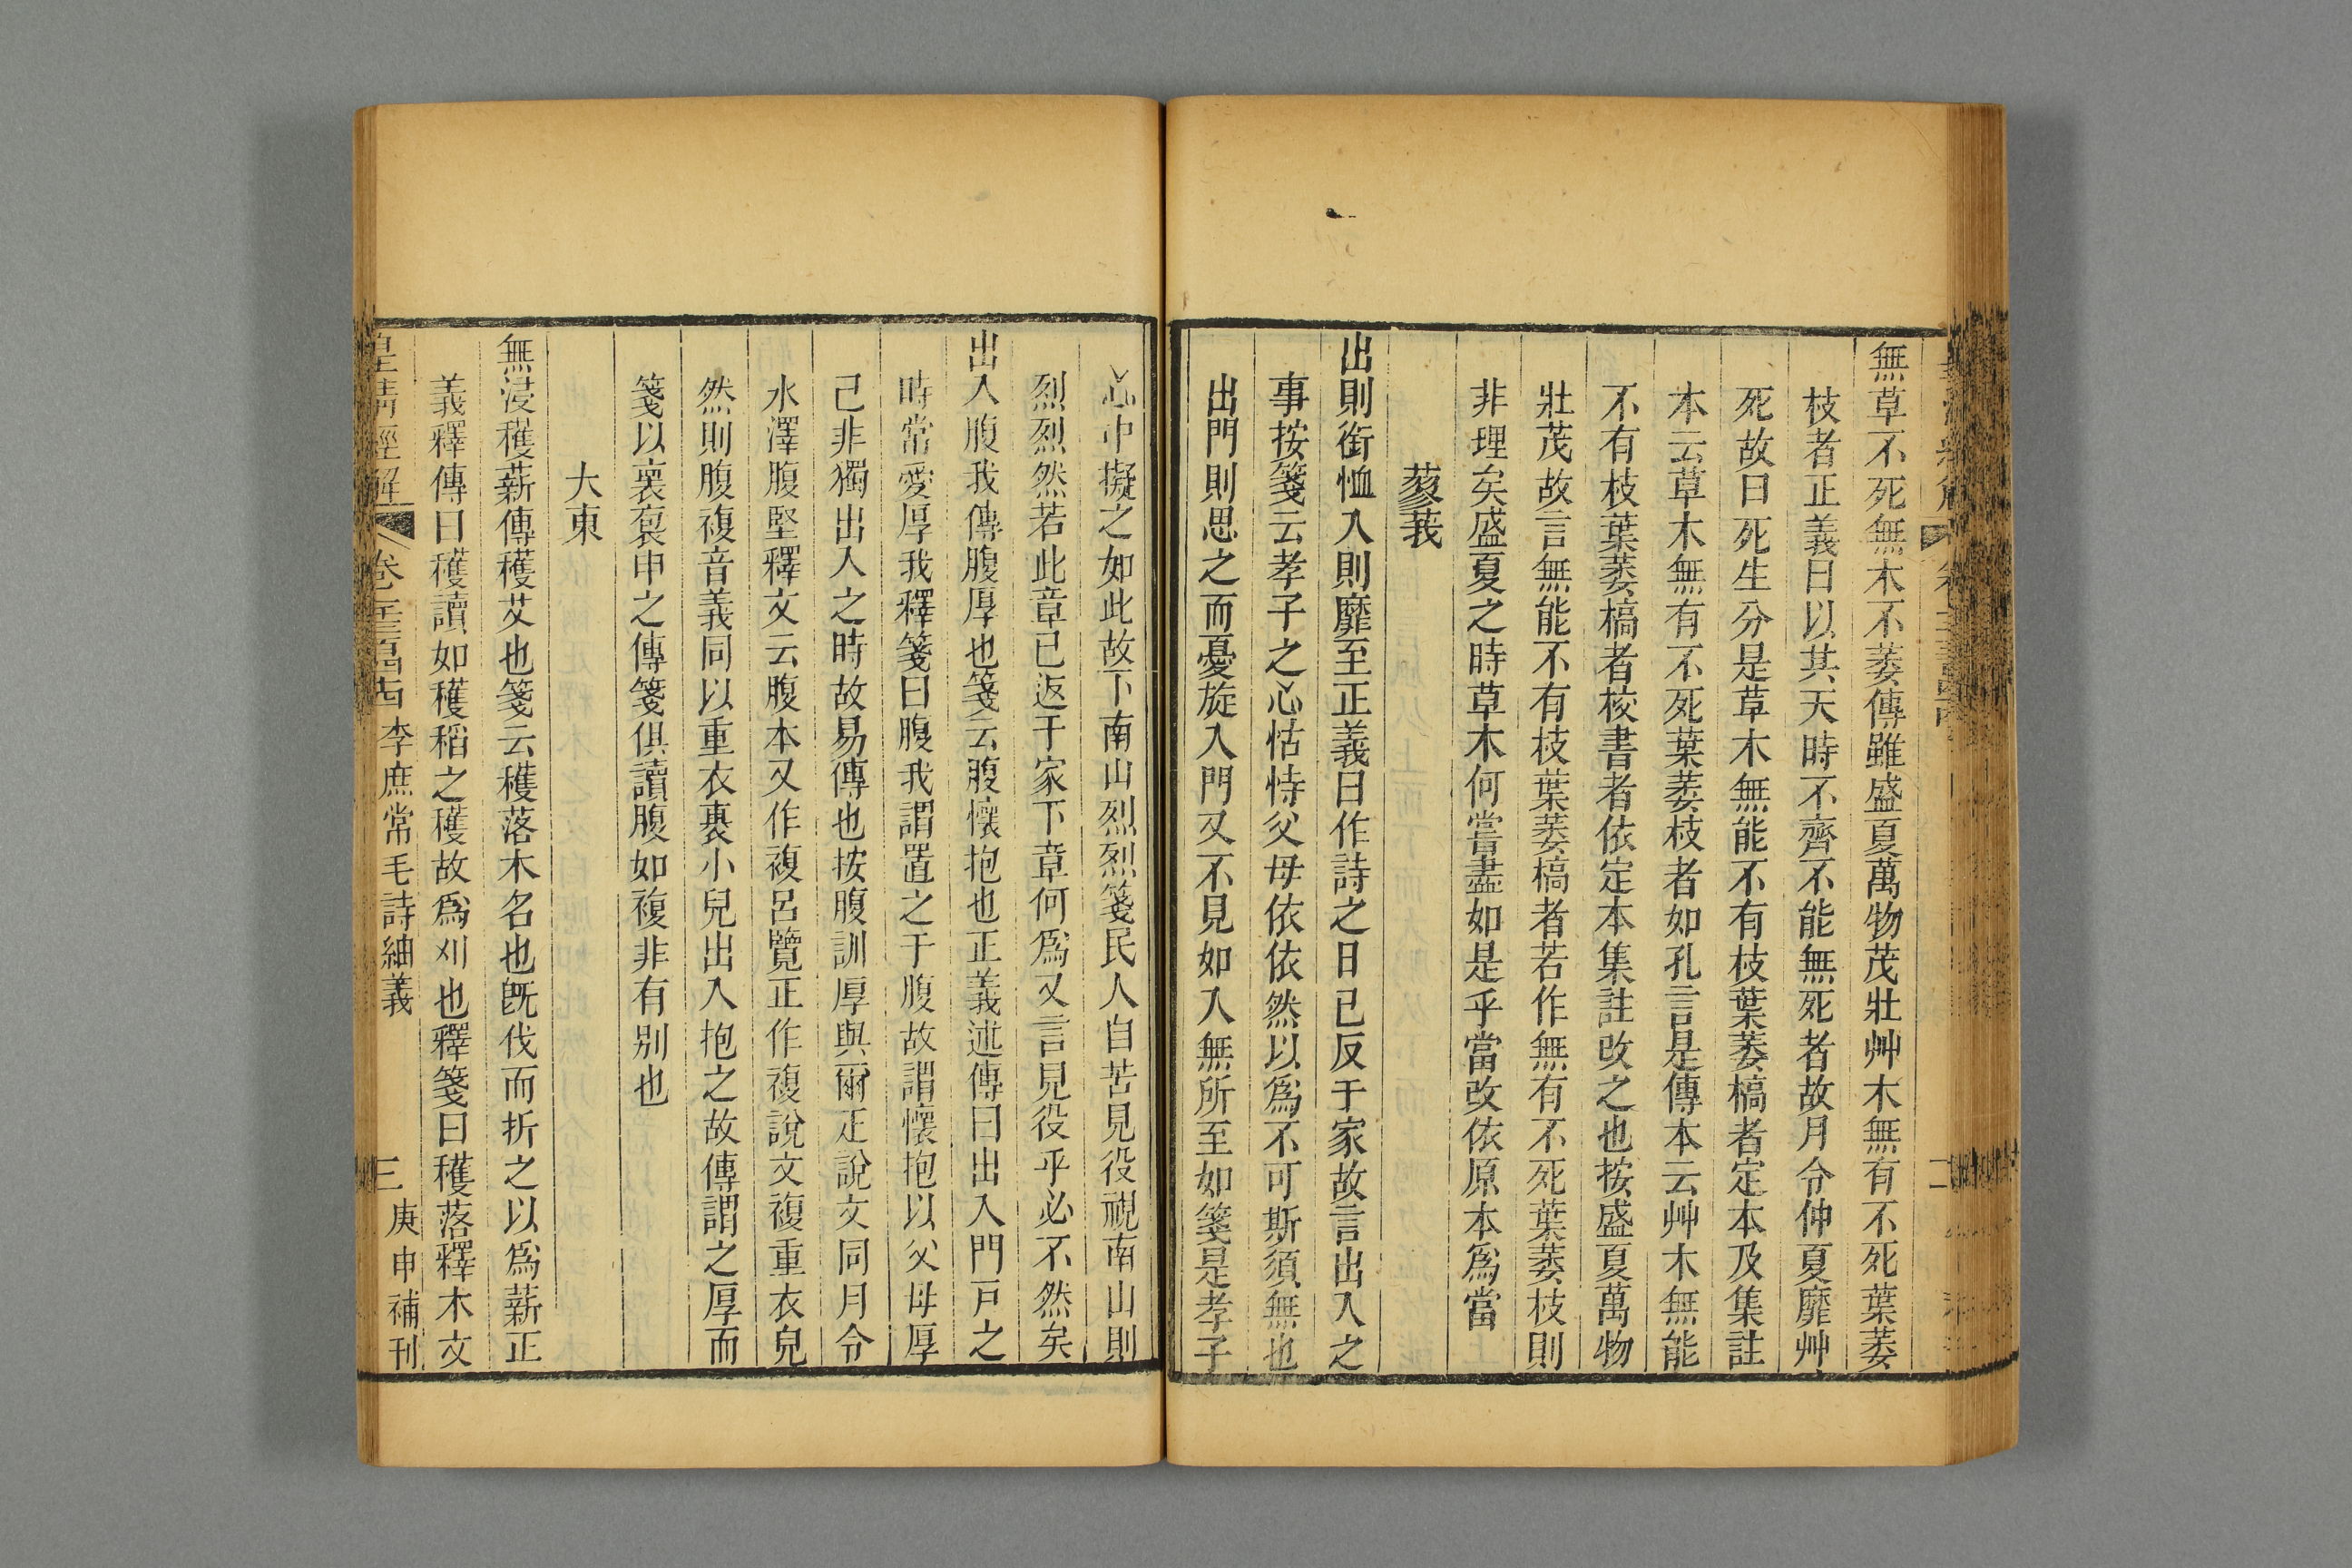 無草不死無木不萎傳雖盛夏萬物茂壯艸木無有不死葉萎
枝者正義曰以其天時不齊不能無死者故月令仲夏靡艸
死故曰死生分是草木無能不有枝葉萎槁者定本及集註
本云草木無有不死葉萎枝者如孔言是傳本云艸木無能
不有枝葉萎槁者校書者依定本集註改之也按盛夏萬物
壯茂故言無能不有枝葉萎槁者若作無有不死葉萎枝則
非理矣盛夏之時草木何嘗盡如是乎當改依原本爲當
蓼莪
出則銜恤入則靡至正義曰作詩之日已反于家故言出入之
事按箋云孝子之心怙恃父母依依然以爲不可斯須無也
出門則思之而憂旋入門又不見如入無所至如箋是孝子
心中擬之如此故下南山烈烈箋民人自苦見役視南山則
烈烈然若此章已返于家下章何爲又言見役乎必不然矣
出入腹我傳腹厚也箋云腹懷抱也正義述傳曰出入門戸之
時常愛厚我釋箋曰腹我謂置之于腹故謂懷抱以父母厚
己非獨出入之時故易傳也按腹訓厚與爾疋說文同月令
水澤腹堅釋文云腹本又作複呂覽正作複說文複重衣皃
然則腹複音義同以重衣裹小兒出入抱之故傳謂之厚而
箋以裹裒申之傳箋俱讀腹如複非有别也
大東
無浸穫薪傳穫艾也箋云穫落木名也旣伐而折之以爲薪正
義釋傳曰穫讀如穫稻之穫故爲刈也釋箋曰穫落釋木文
皇淸經解 卷 李庶常毛詩紬義 三 庚申補刊